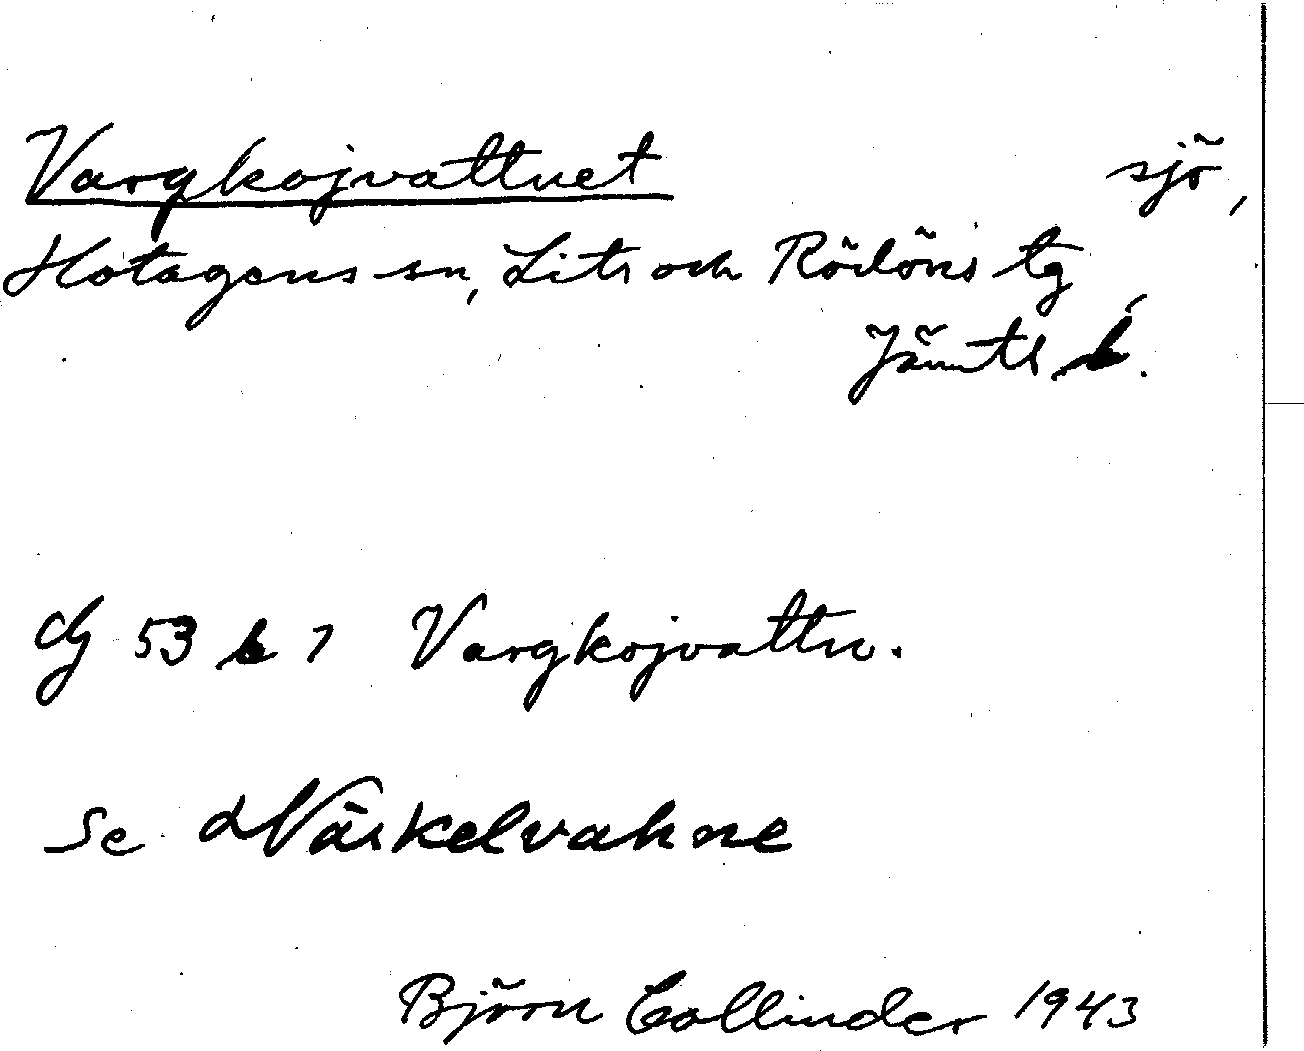 Vargkojvattnet sjö,
Hotagens sn, Lits och Rödöns tg
Jämtl l.
dg 53 b 1 Vargkojvattn.
Se Näskelvahne
Björn Collinder 1943